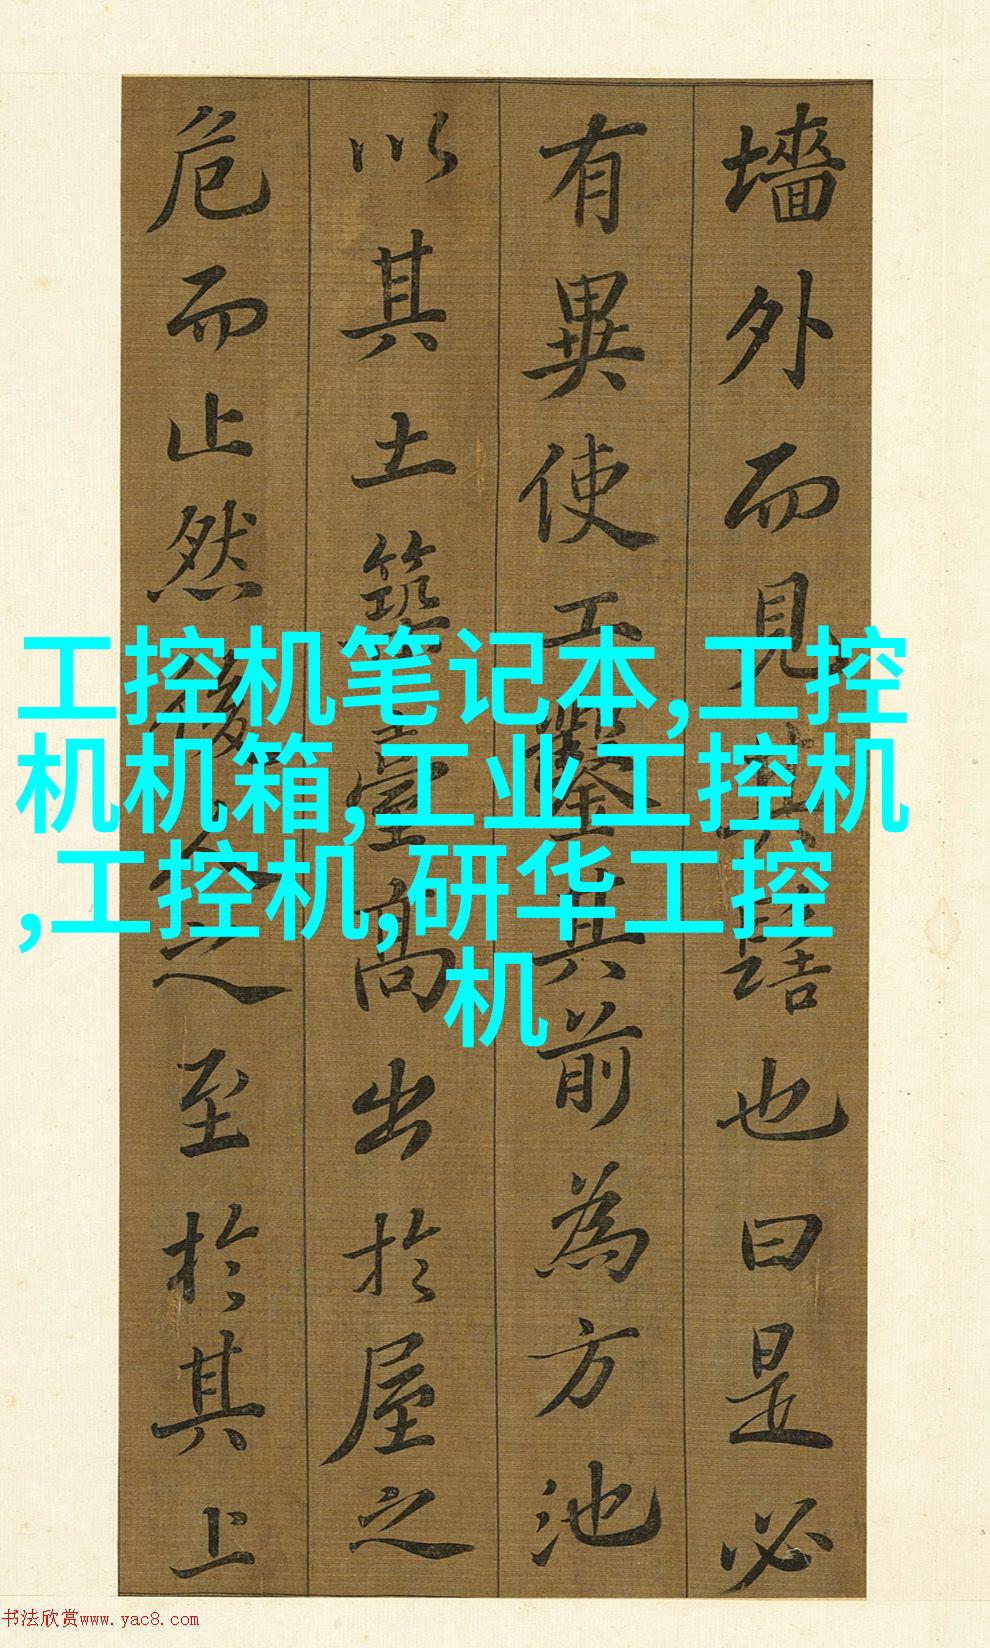 墻外而見其髻也曰是必
有異使工鑿其前為方池
以其土築臺高出於屋之
危而止然後人之至於其上
工控机笔记本,工控
机机箱,工业工控机
,工控机,研华工控
机
书法欣赏www.yac8.com